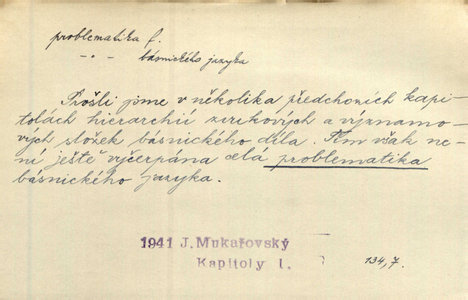 problematika f.
-"- básnického jazyka
Prošli jsme v několika předchozích kapi-
tolách hierarchii zvukových a významo-
vých složek básnického díla. Tím však ne-
ní ještě vyčerpána celá problematika
básnického jazyka.
1941 J. Mukařovský
Kapitoly I. 134,7.